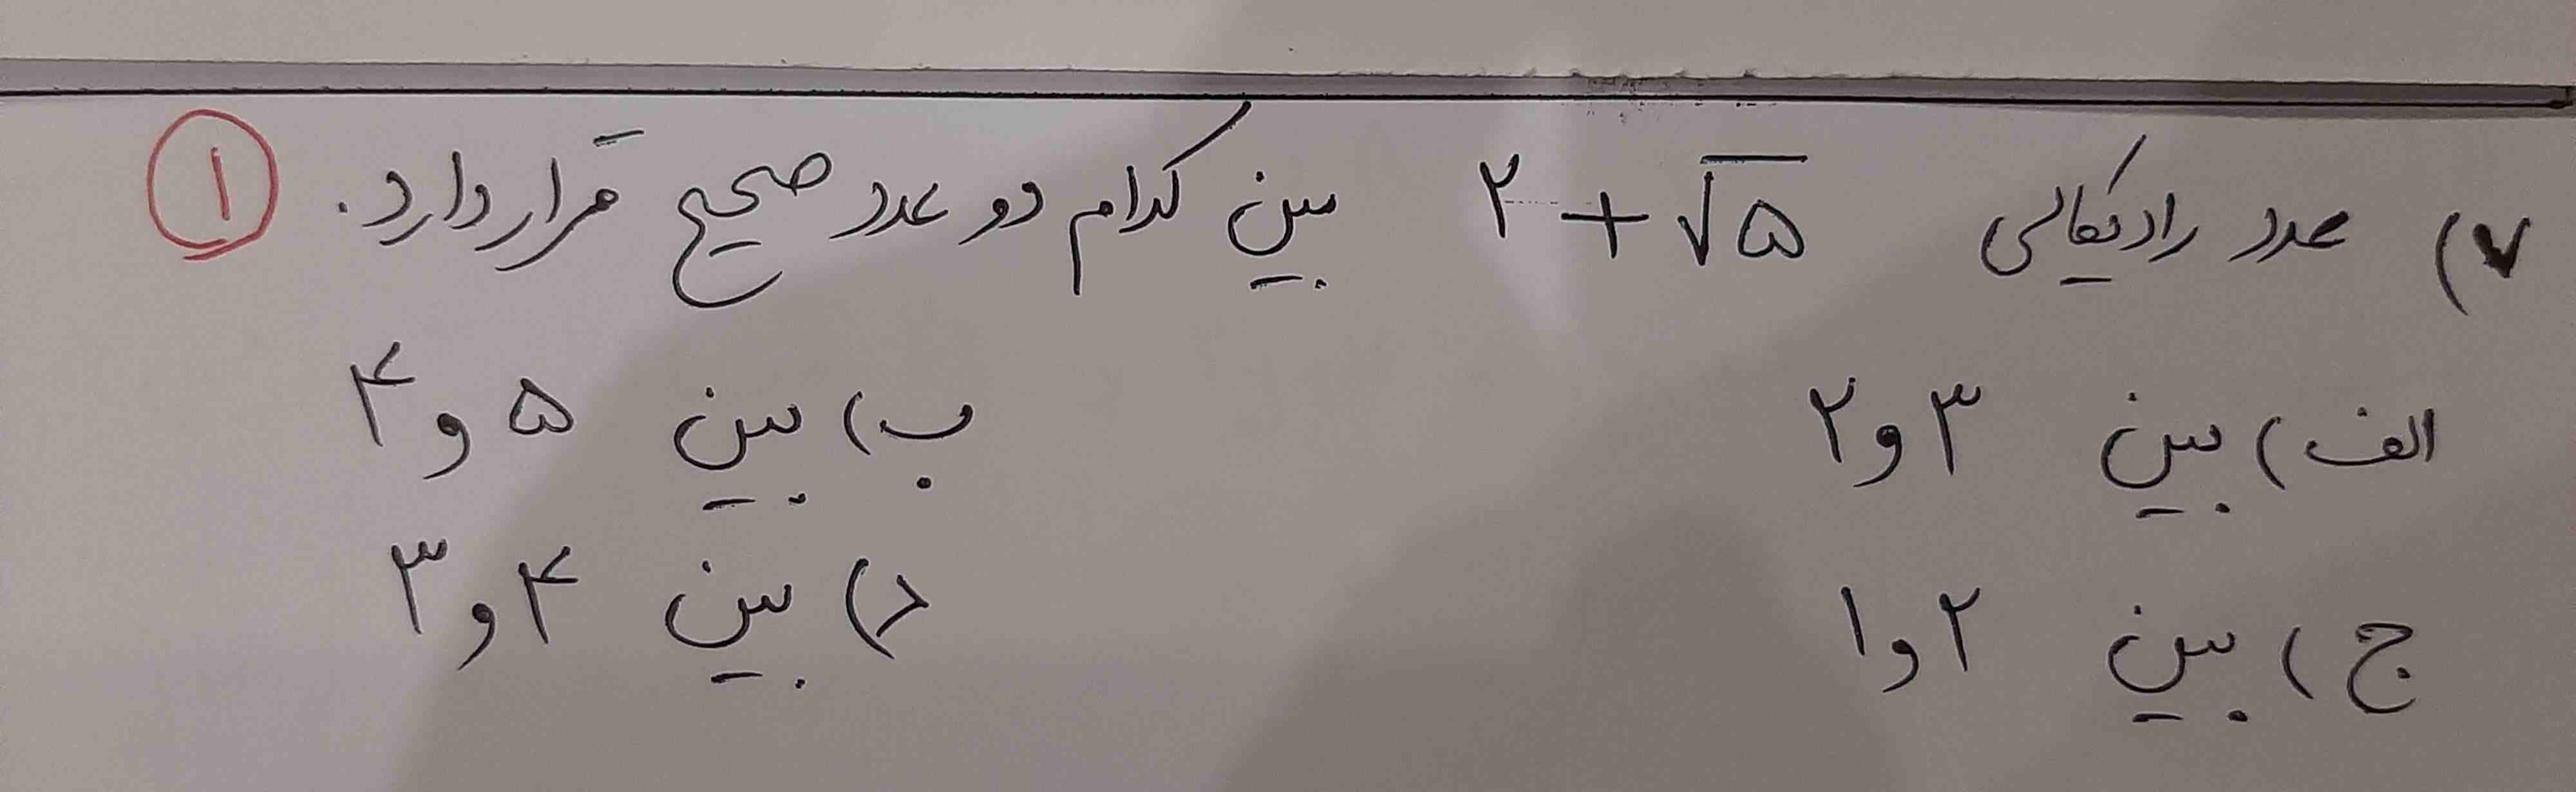 ۷) عدد رادیکالی ۲+√۵ بین کدام دو عدد صحیح قرار دارد. ۱
الف) بین ۳ و ۲ ب) بین ۵ و ۴
ج) بین ۲ و ۱ د) بین ۴ و ۳